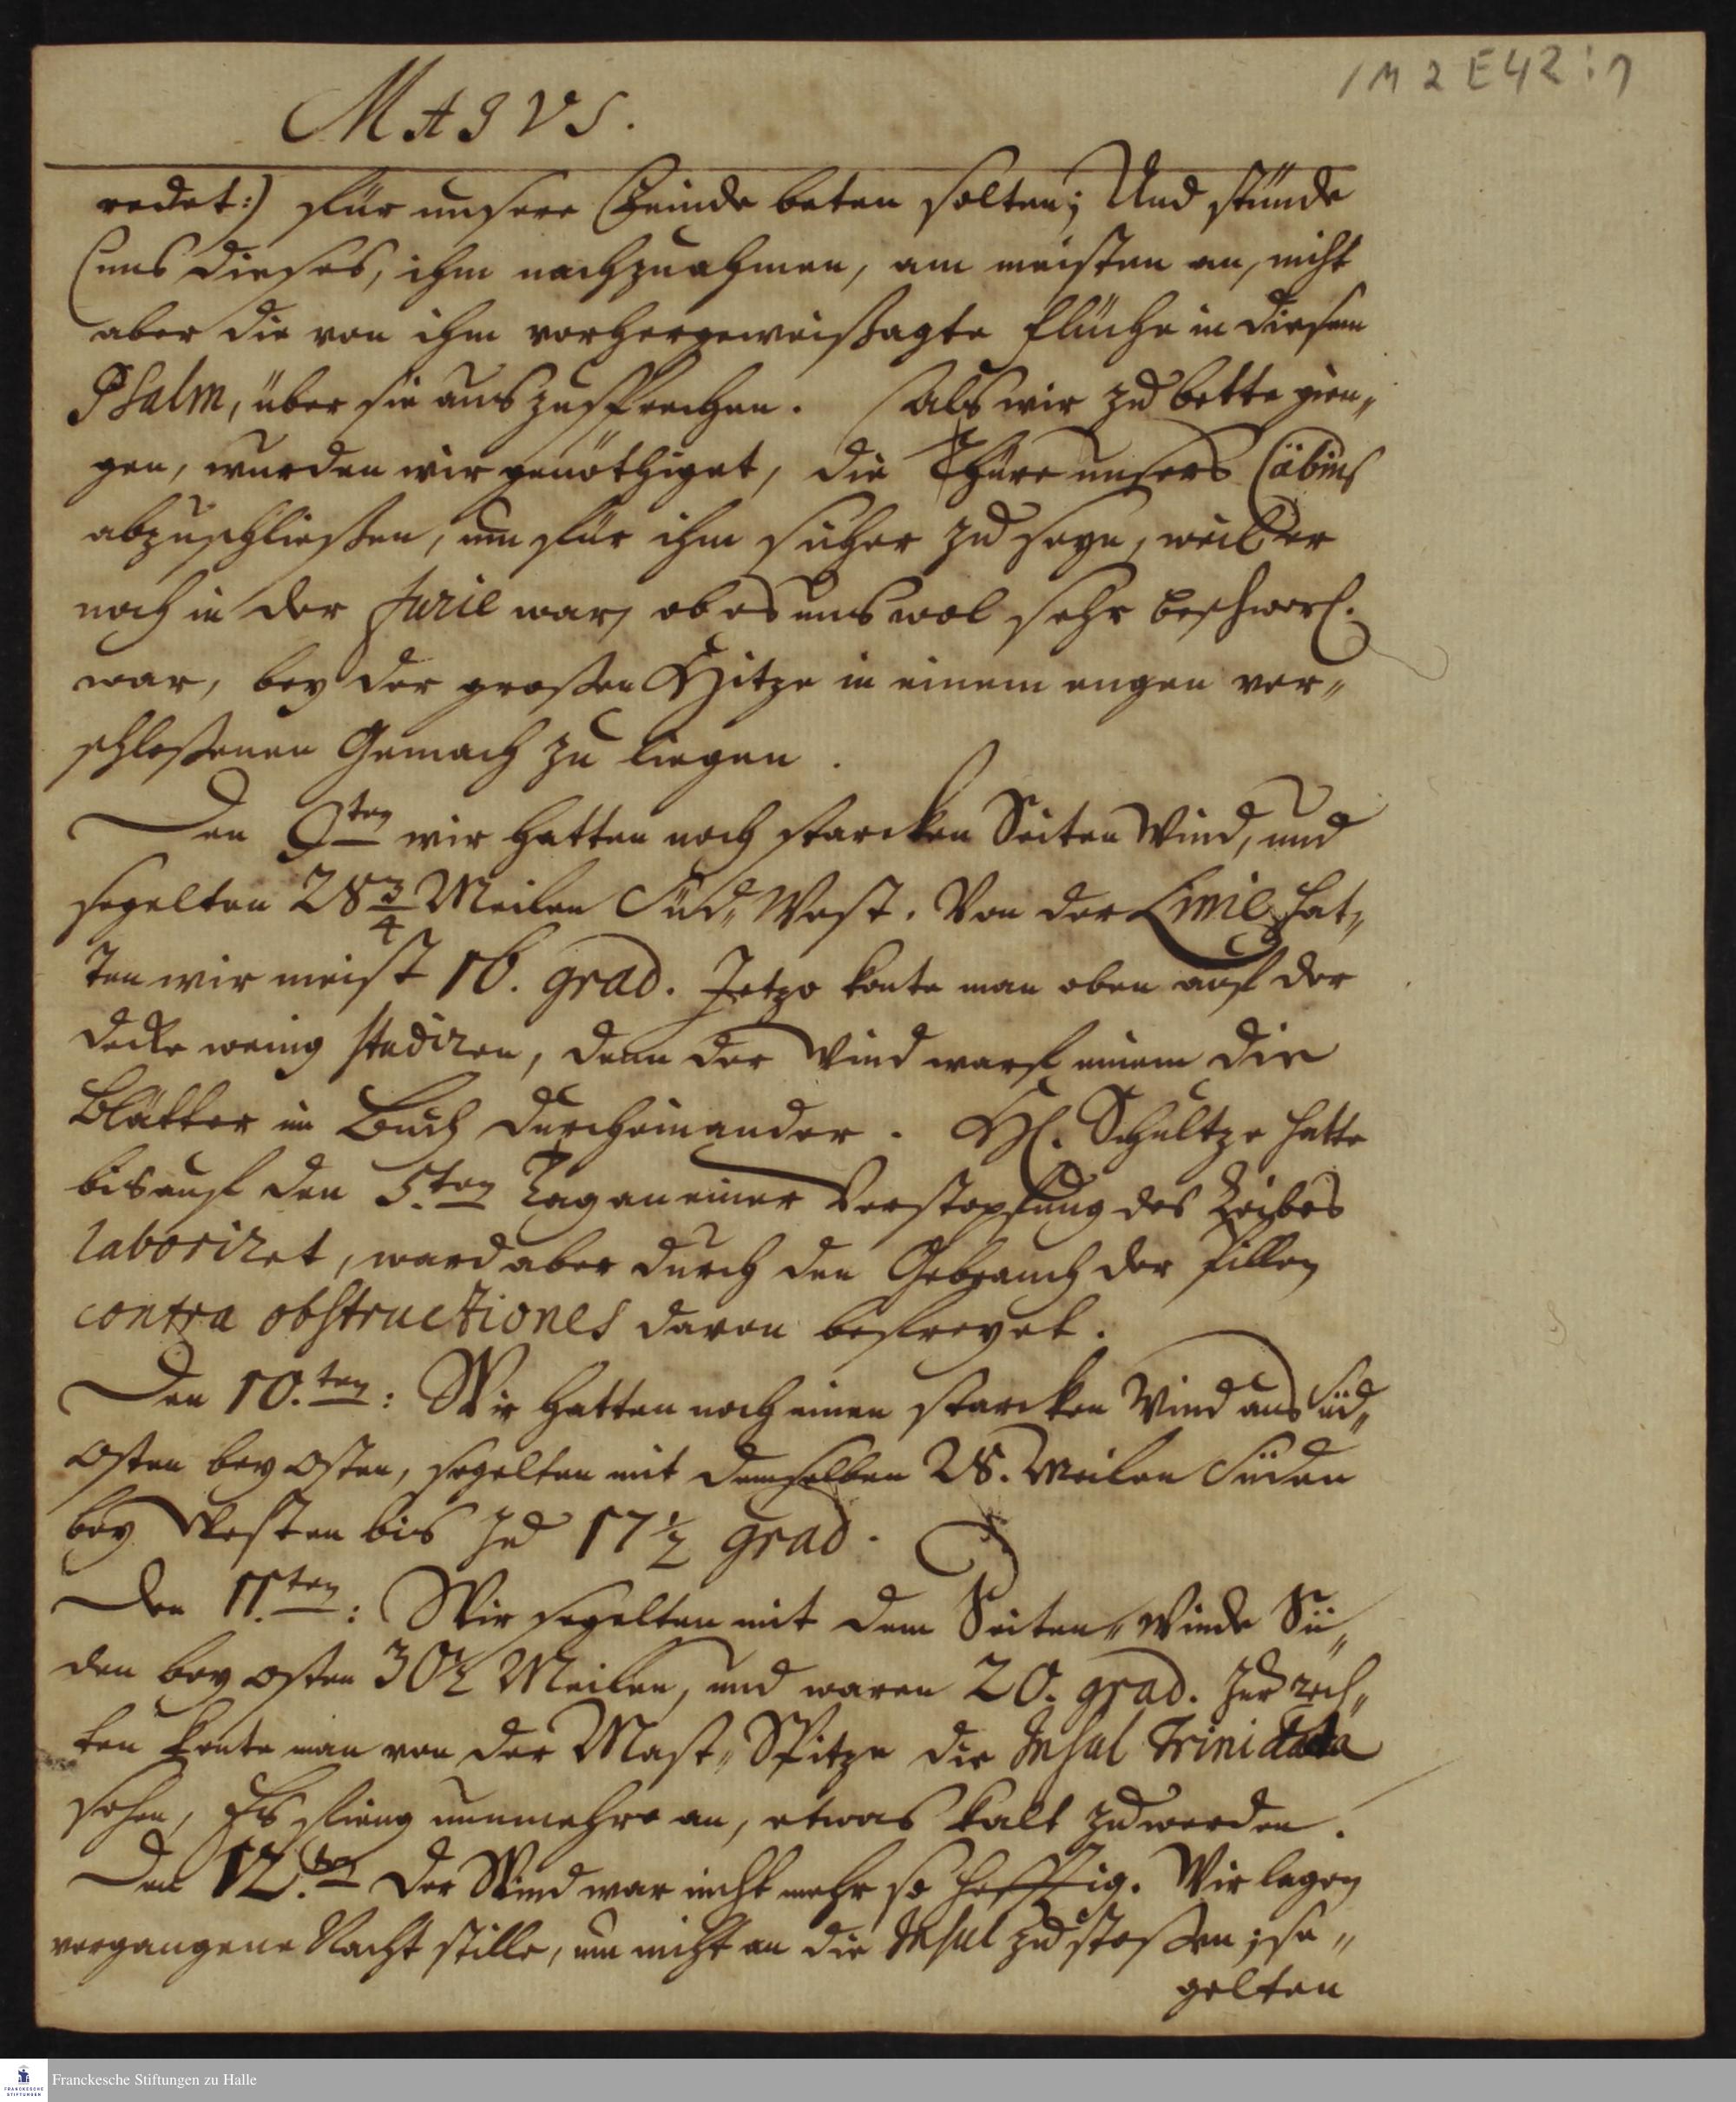 1M 2 E 42 : 7
MAJVS.
redet:) für unsere Feinde beten solten; Und stünde
uns dieses, ihm nachzuahmen, am meisten an, nicht
aber die von ihm vorhergeweißagte Flüche in diesem
Psalm, über sie auszusprechen. Als wir zu bette gien„
gen, wurden wir genöthiget, die Thüre unsers Cabins
abzuschließen, um für ihm sicher zu seyn, weil er
noch in der furie war, ob es uns wol sehr beschwerl.
war, bey der großen Hitze in einem engen ver„
schloßenen Gemach zu liegen.
Den 9ten wir hatten noch starcken Seiten Wind, und
segelten 28 3/4 Meilen Süd„ West. Von der Linie hat„
ten wir meist 16. grad. Jetzo konte man oben auf der
decke wenig studiren, denn der Wind warf einem die
Blätter im Buch durcheinander. H. Schultze hatte
bis auf den 5.ten Tag an einer Verstopfung des Leibes
laboriret, ward aber durch den Gebrauch der Pillen
contra obstructiones davon befreyet.
Den 10.ten: Wir hatten noch einen starcken Wind aus Süd„
osten bey osten, segelten mit demselben 28. Meilen Süden
bey Westen bis zu 17 1/2 grad.
Den 11.ten: Wir segelten mit dem Seiten„ Winde Sü„
den bey osten 30 1/2 Meilen, und waren 20. grad. Zur rech„
ten konte man von der Mast„ Spitze die Insul Trinidada
sehen, Es fieng nunmehro an, etwas kalt zu werden.
Den 12.ten Der Wind war nicht mehr so hefftig. Wir lagen
vergangene Nacht stille, um nicht an die Insul zu stoßen; se„
gelten
FRANCKESCHE STIFTUNGEN
Franckesche Stiftungen zu Halle